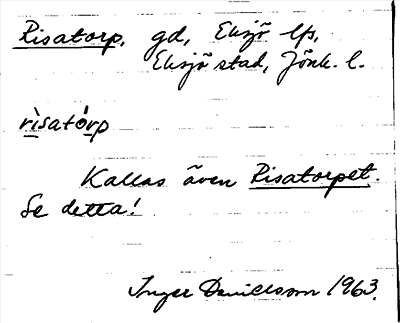 Risatorp, gd, Eksjö lfs,
Eksjö stad, Jönk. l.
rìsatórp
Kallas även Risatorpet.
Se detta!
Inger Danielsson 1963.